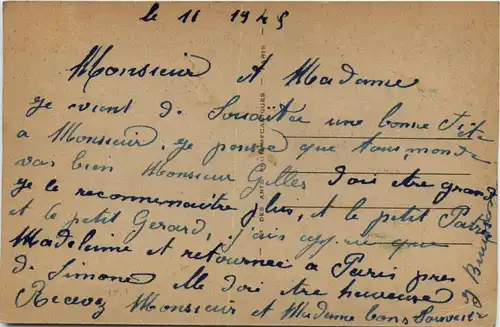 le 11 1945
Monsieur et Madame
je vient de Souaitée une bonne Fête
a Monsieur, je pense que tous monde
vas bien Monsieur Gilles dois etre grand
je le reconnenaitre plus, et le petit
et le petit Gerard, j'ais que
Madeleine et retournee a Paris pres
de Simone elle doit etre heureuse
Recevez Monsieur et Madame bons Souvenir